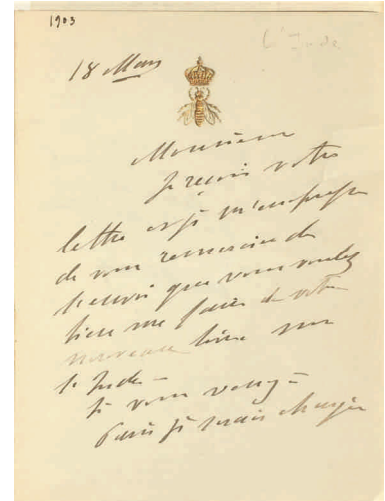 1903
18 Mars
Monsieur
Je reçois votre
lettre et je m'empresse
de vous remercier de
l'envoi que vous voulez
bien me faire de votre
nouveau livre sur
l'Inde -
Je vous
Paris je serais